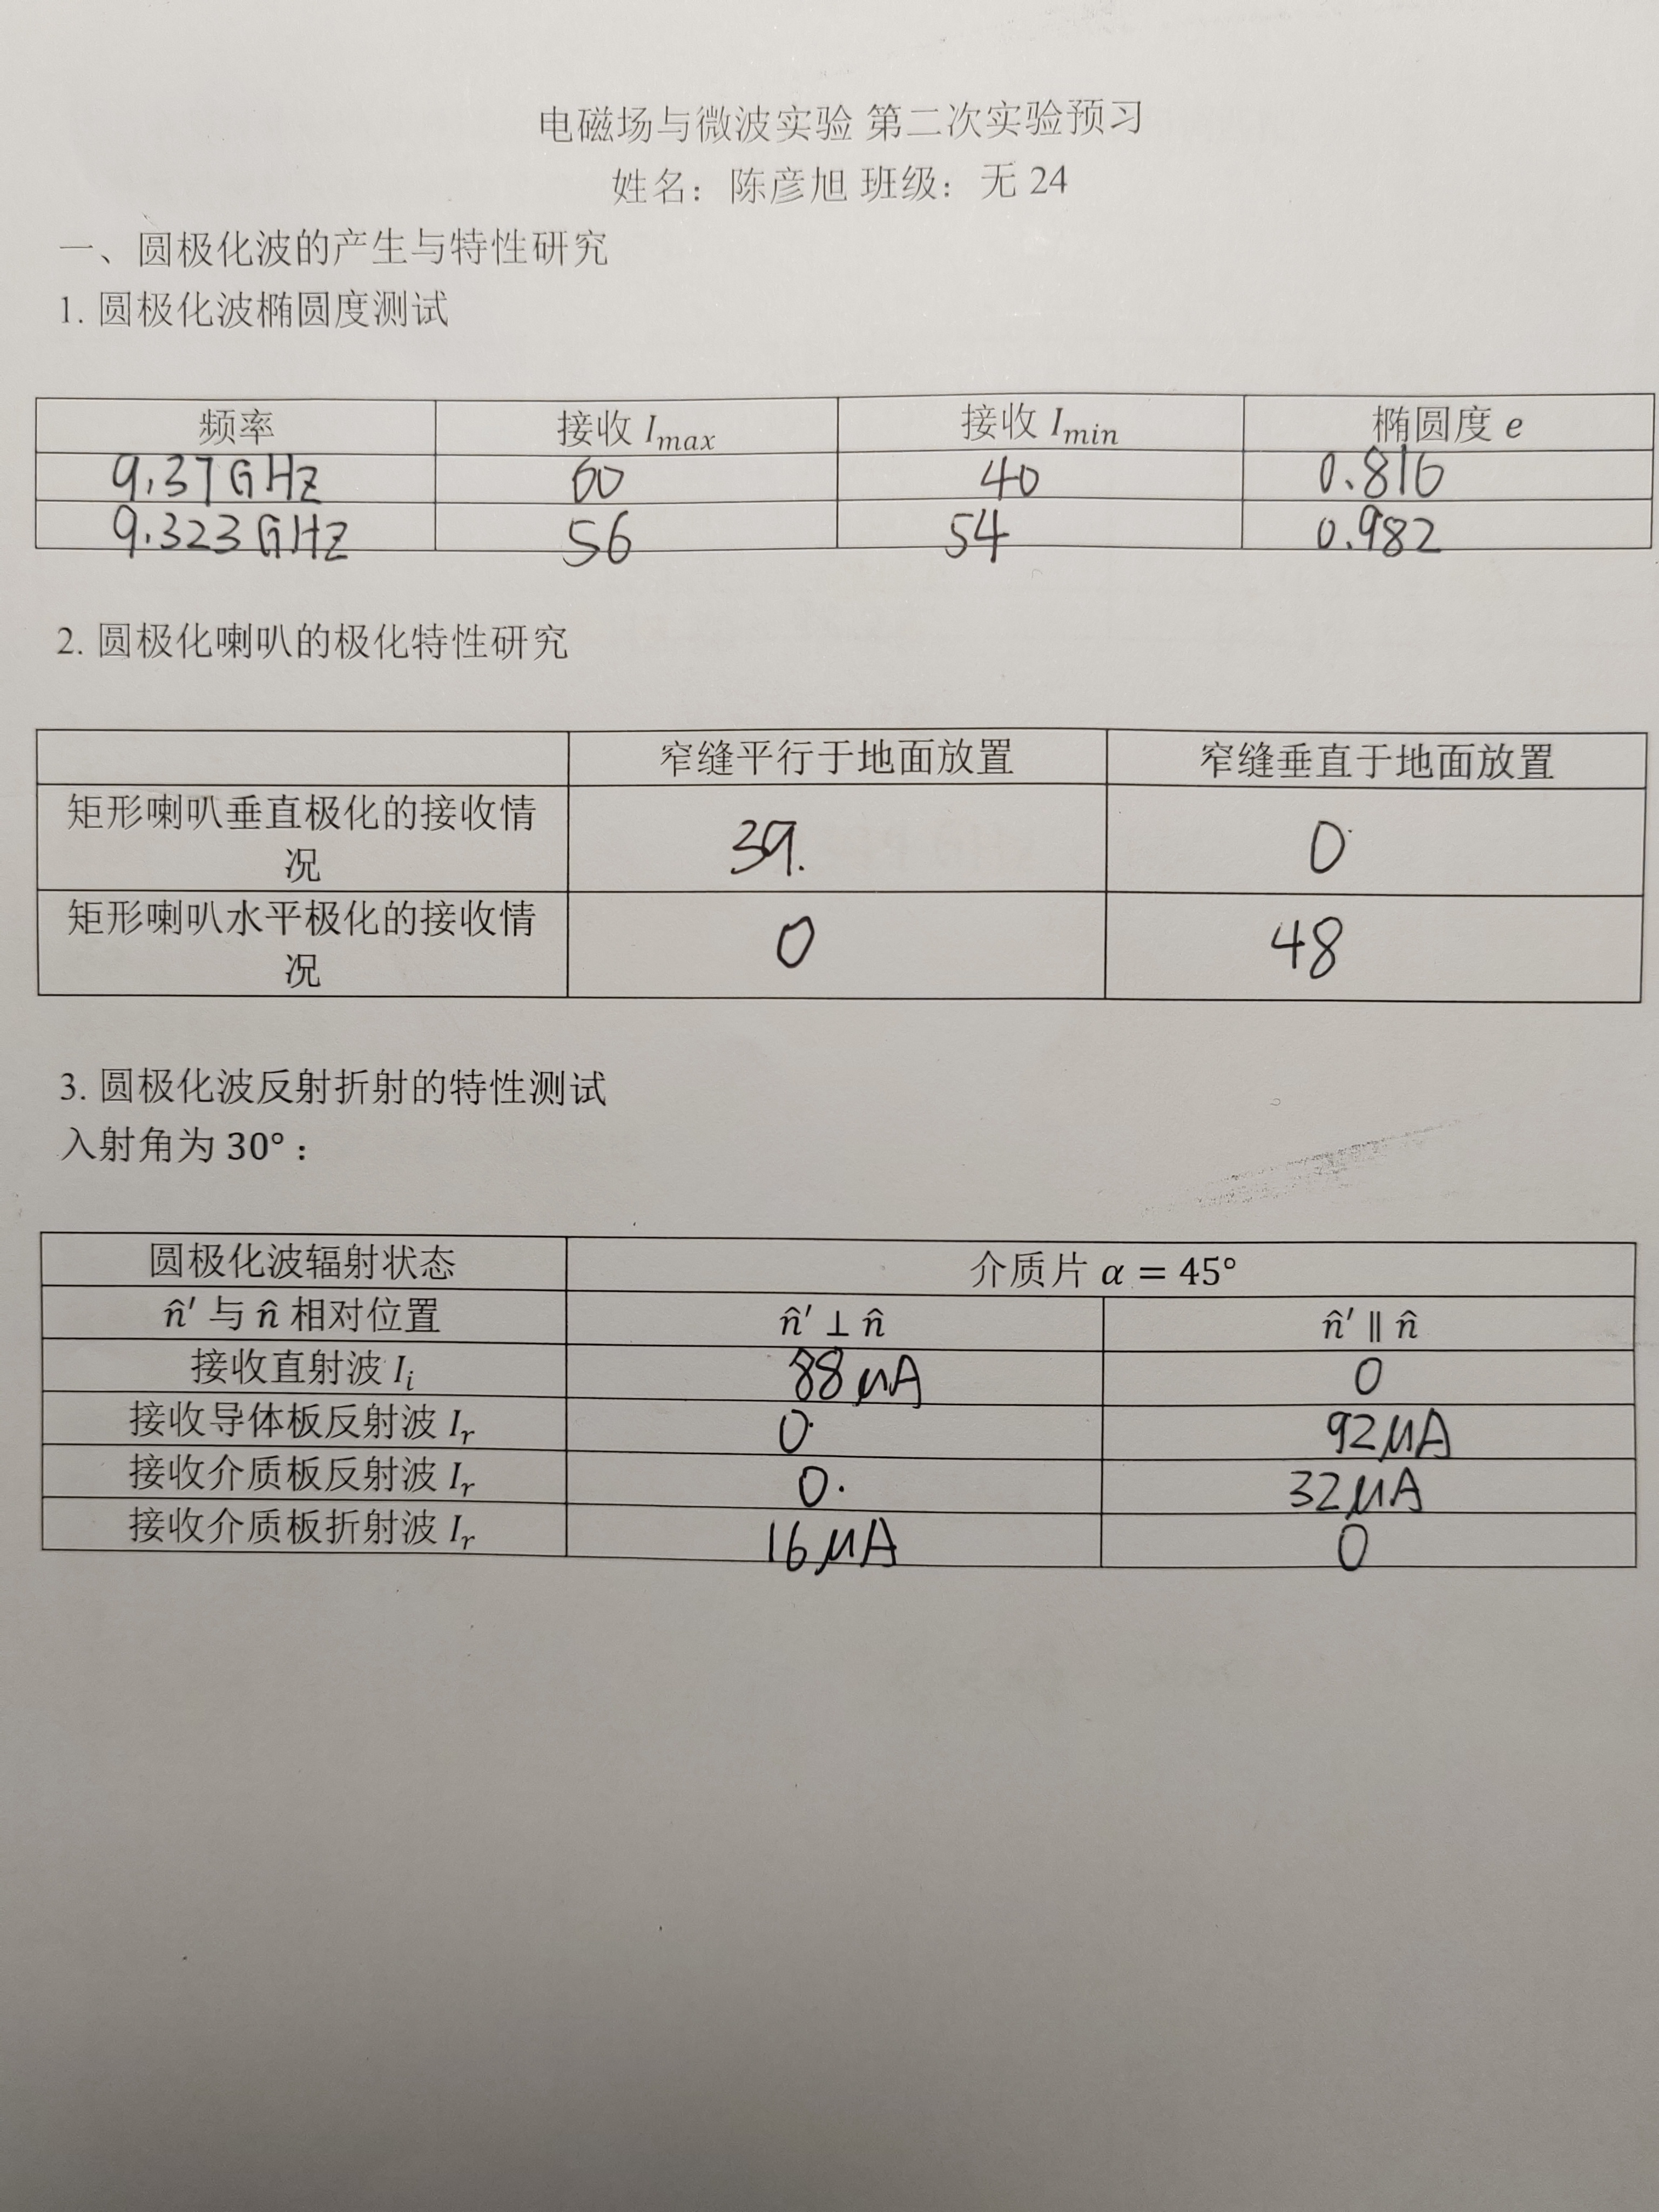 电磁场与微波实验 第二次实验预习
姓名：陈彦旭 班级：无 24
一、圆极化波的产生与特性研究
1. 圆极化波椭圆度测试
频率 接收 Imax 接收 Imin 椭圆度 e
9.37GHz 60 40 0.816
9.323GHz 56 54 0.982
2. 圆极化喇叭的极化特性研究
窄缝平行于地面放置 窄缝垂直于地面放置
矩形喇叭垂直极化的接收情
况 39. 0
矩形喇叭水平极化的接收情
况 0 48
3. 圆极化波反射折射的特性测试
入射角为 30°：
圆极化波辐射状态 介质片 α = 45°
n̂′ 与 n̂ 相对位置 n̂′ ⊥ n̂ n̂′ ∥ n̂
接收直射波 Ii 88μA 0
接收导体板反射波 Ir 0 92μA
接收介质板反射波 Ir 0. 32μA
接收介质板折射波 Ir 16μA 0